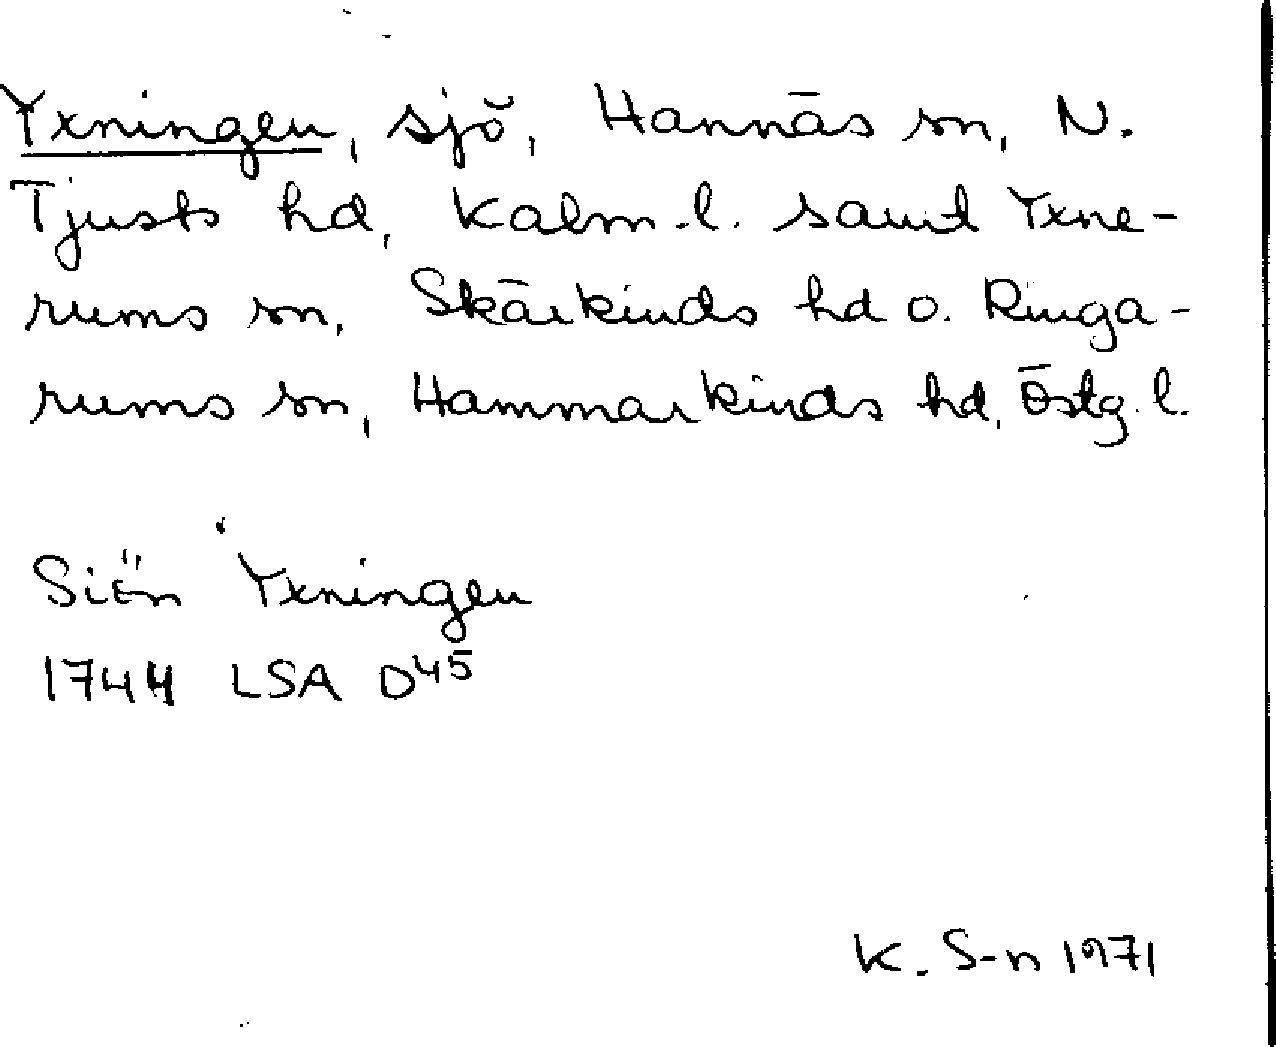 Yxningen, sjö, Hannäs sn, N.
Tjusts hd, Kalm. l. samt Yxne-
rums sn, Skärkinds hd o. Ringa-
rums sn, Hammarkinds hd, Östg. l.
Siön Yxningen
1744 LSA D45
K. S-n 1971